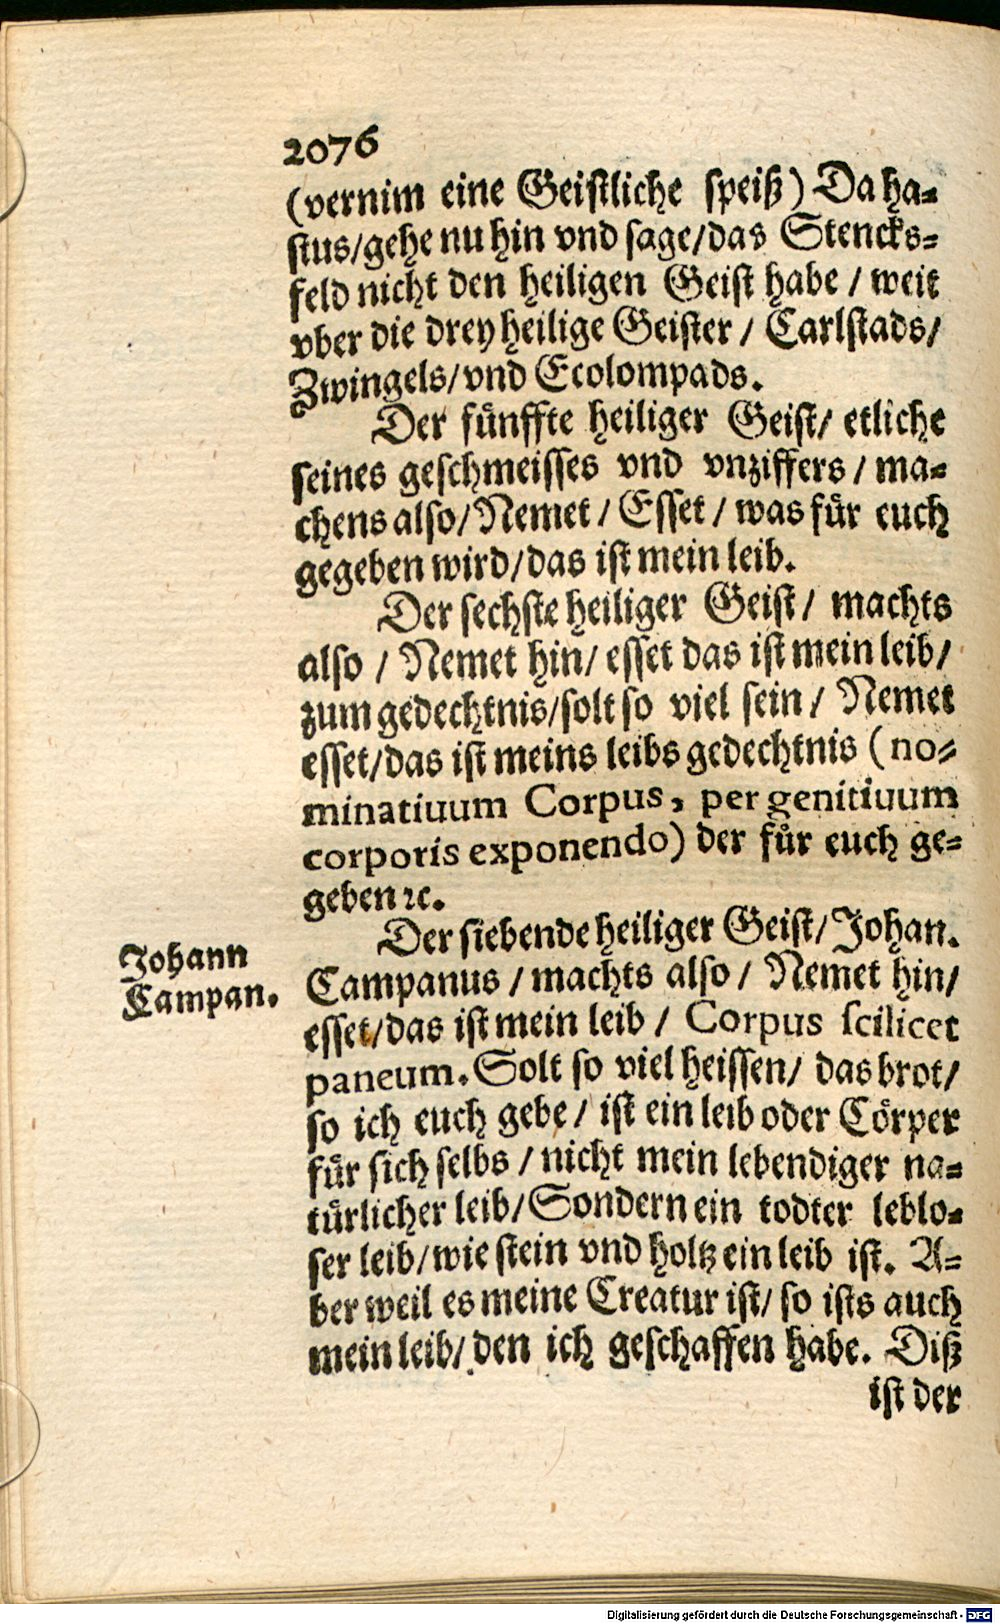 2076
(vernim eine Geistliche speiß) Da ha-
stus/gehe nu hin vnd sage/das Stencks-
feld nicht den heiligen Geist habe / weit
vber die drey heilige Geister / Carlstads/
Zwingels/vnd Ecolompads.
Der fünffte heiliger Geist/ etliche
seines geschmeisses vnd vnziffers / ma-
chens also/Nemet / Esset / was für euch
gegeben wird/das ist mein leib.
Der sechste heiliger Geist / machts
also / Nemet hin/ esset das ist mein leib/
zum gedechtnis/solt so viel sein / Nemet
esset/das ist meins leibs gedechtnis (no-
minatiuum Corpus, per genitiuum
corporis exponendo) der für euch ge-
geben ꝛc.
Der siebende heiliger Geist/Johan.
Johann
Campan.
Campanus / machts also / Nemet hin/
esset/das ist mein leib / Corpus scilicet
paneum. Solt so viel heissen/ das brot/
so ich euch gebe / ist ein leib oder Cörper
für sich selbs / nicht mein lebendiger na-
türlicher leib/Sondern ein todter leblo-
ser leib/wie stein vnd holtz ein leib ist. A-
ber weil es meine Creatur ist/ so ists auch
mein leib/ den ich geschaffen habe. Diß
ist der
Digitalisierung gefördert durch die Deutsche Forschungsgemeinschaft - DFG